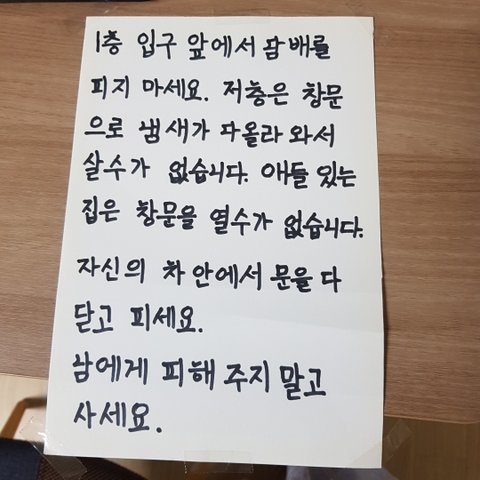 1층 입구 앞에서 담배를
피지 마세요. 저층은 창문
으로 냄새가 다올라 와서
살수가 없습니다. 애들 있는
집은 창문을 열수가 없습니다.
자신의 차안에서 문을 다
닫고 피세요.
남에게 피해 주지 말고
사세요.